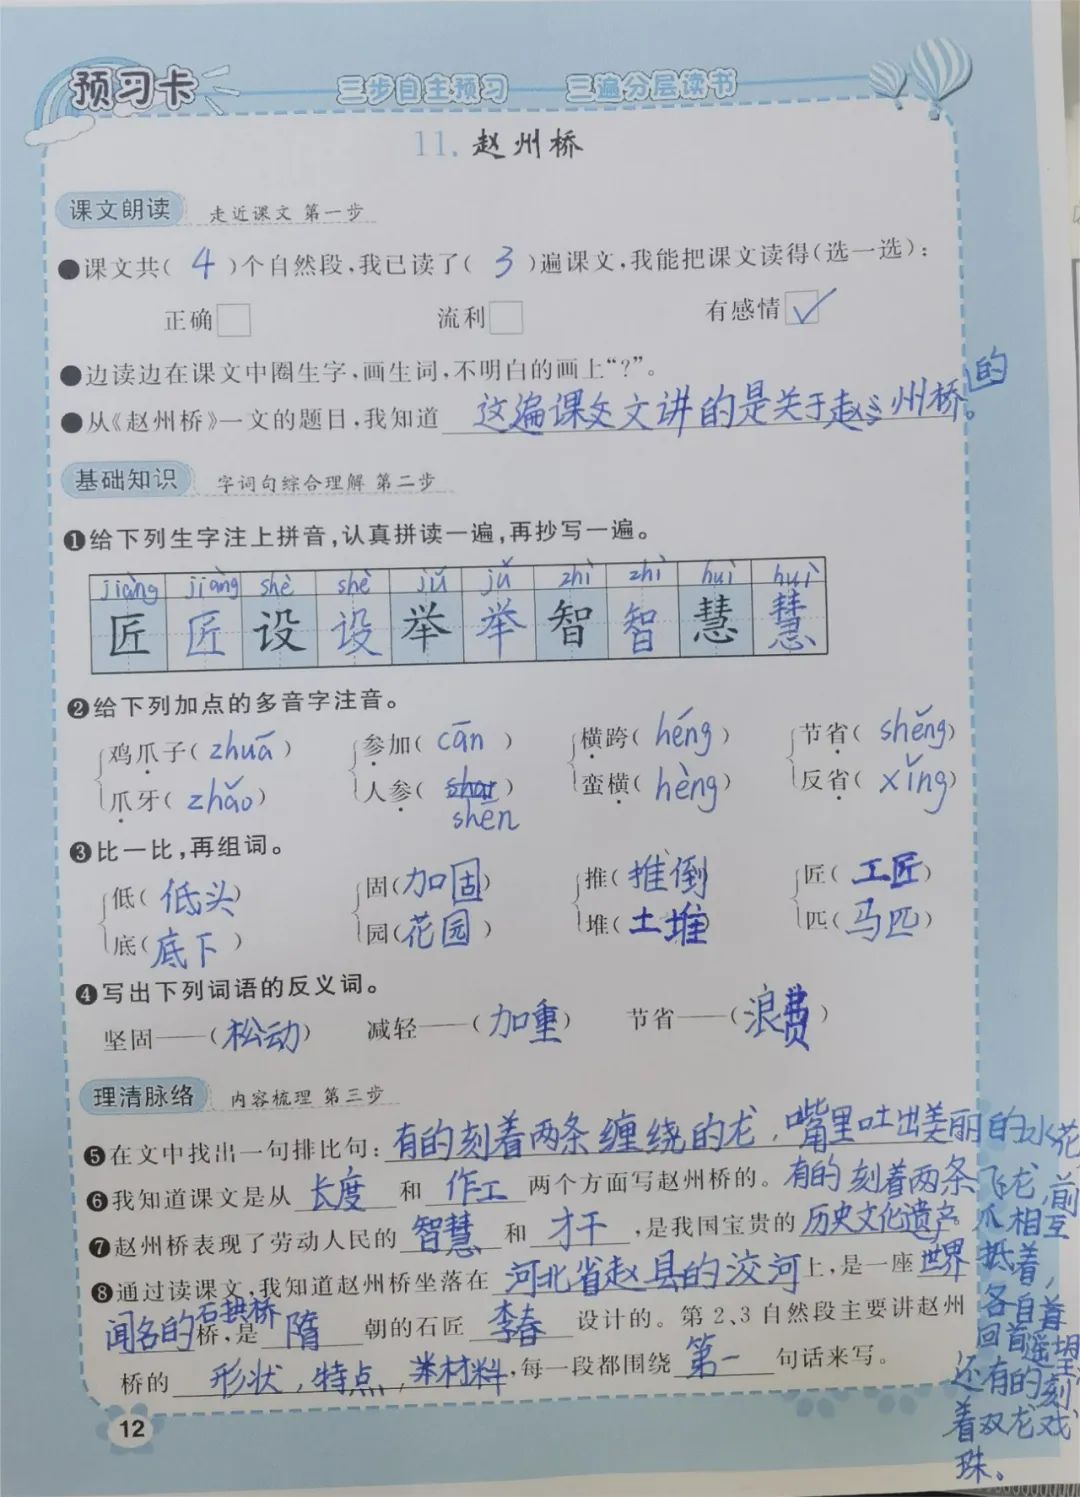 预习卡 三步自主预习 三遍分层读书
11. 赵州桥
课文朗读 走近课文 第一步
●课文共( 4 )个自然段,我已读了( 3 )遍课文,我能把课文读得(选一选):
正确 流利 有感情✓
●边读边在课文中圈生字,画生词,不明白的画上“?”。
●从《赵州桥》一文的题目,我知道 这遍课文讲的是关于赵州桥的。
基础知识 字词句综合理解 第二步
❶给下列生字注上拼音,认真拼读一遍,再抄写一遍。
jiàng jiàng shè shè jǔ jǔ zhì zhì huì huì
匠 匠 设 设 举 举 智 智 慧 慧
❷给下列加点的多音字注音。
鸡爪子( zhuǎ ) 参加( cān ) 横跨( héng ) 节省( shěng )
爪牙( zhǎo ) 人参( shēn ) 蛮横( hèng ) 反省( xǐng )
❸比一比,再组词。
低( 低头 ) 固( 加固 ) 推( 推倒 ) 匠( 工匠 )
底( 底下 ) 园( 花园 ) 堆( 土堆 ) 匹( 马匹 )
❹写出下列词语的反义词。
坚固——( 松动 ) 减轻——( 加重 ) 节省——( 浪费 )
理清脉络 内容梳理 第三步
❺在文中找出一句排比句: 有的刻着两条缠绕的龙,嘴里吐出美丽的水花,
有的刻着两条飞龙,前
爪相互
抵着,
各自
回首遥望
还有的刻
着双龙戏
珠。
❻我知道课文是从 长度 和 作工 两个方面写赵州桥的。
❼赵州桥表现了劳动人民的 智慧 和 才干 ,是我国宝贵的 历史文化遗产。
❽通过读课文,我知道赵州桥坐落在 河北省赵县的洨河 上,是一座 世界
闻名的石拱桥 桥,是 隋 朝的石匠 李春 设计的。第2、3自然段主要讲赵州
桥的 形状,特点,材料 ,每一段都围绕 第一 句话来写。
12